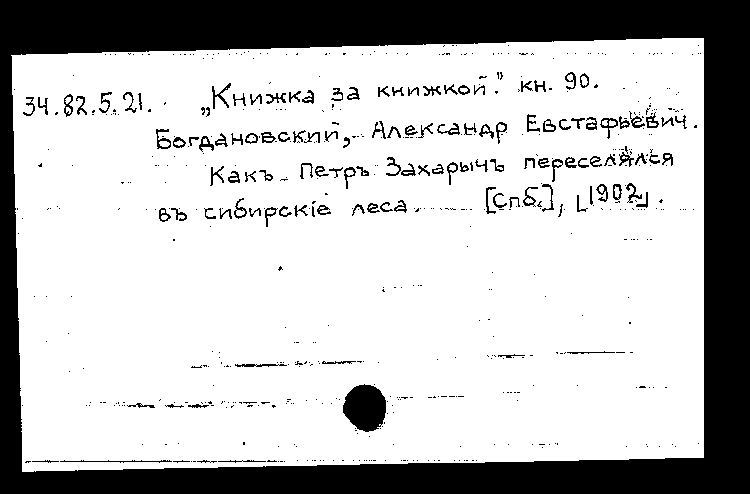 34.82.5.21. „Книжка за книжкой." кн. 90.
Богдановский, Александр Евстафьевич.
Какъ Петръ Захарычъ переселялся
въ сибирскіе леса. [Спб.], [1902].